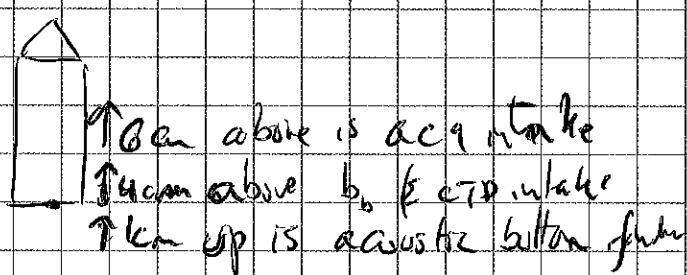 ↑6cm above is ac9 intake
↑4cm above bb & CTD intake
↑ cm up is acoustic bottom